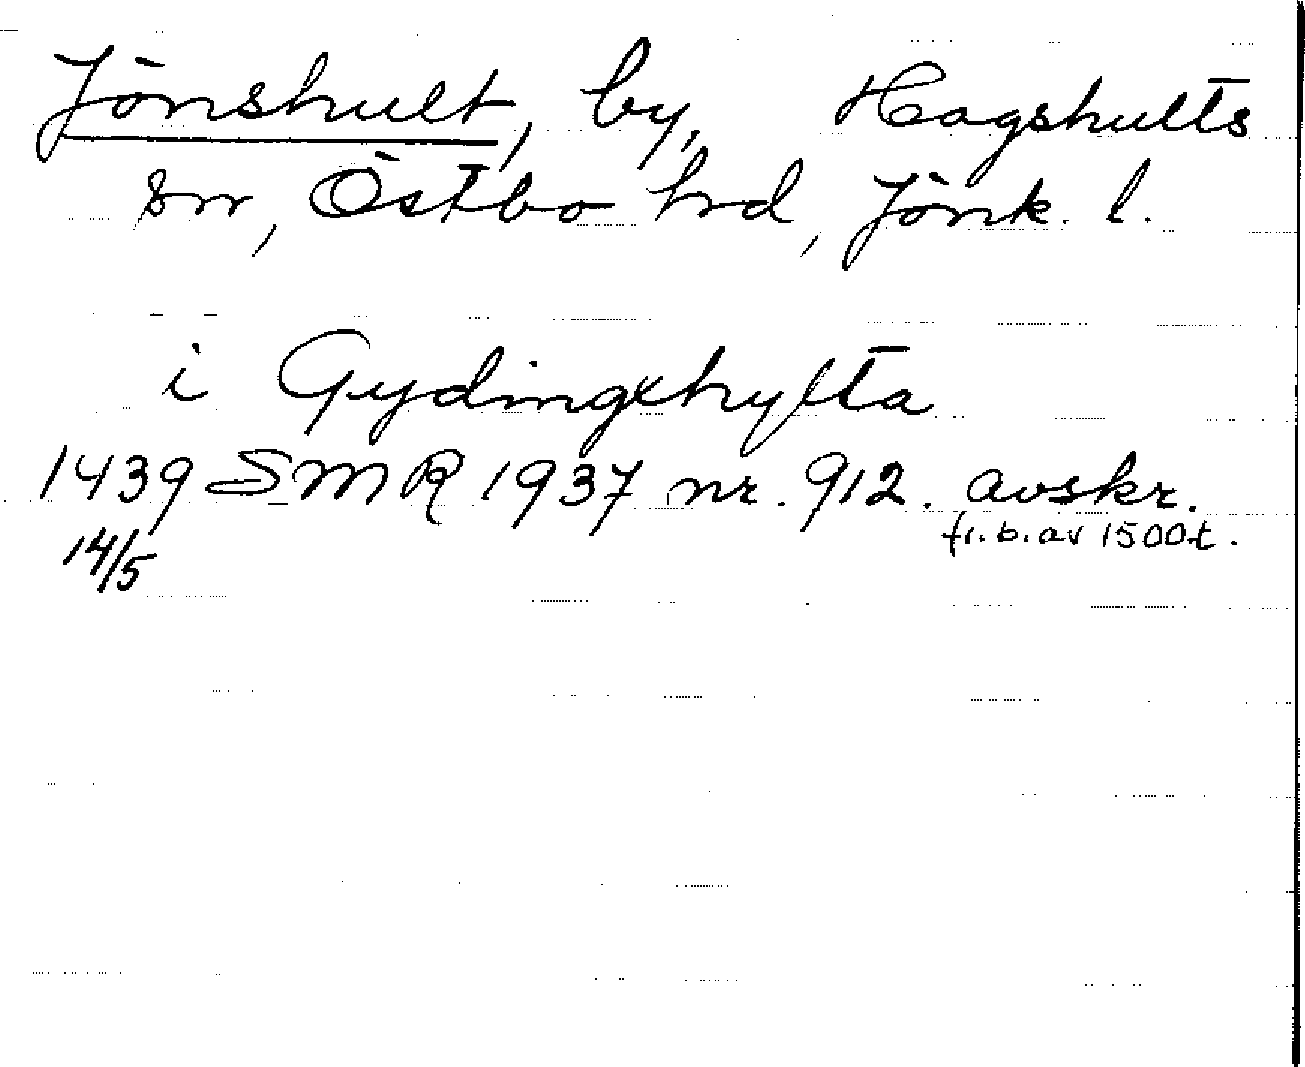 Jönshult, by, Hagshults
sn, Östbo hrd, Jönk. l.
i Gydingxhylta
1439 SMR 1937 nr. 912. avskr.
fr. b. av 1500-t.
14/5